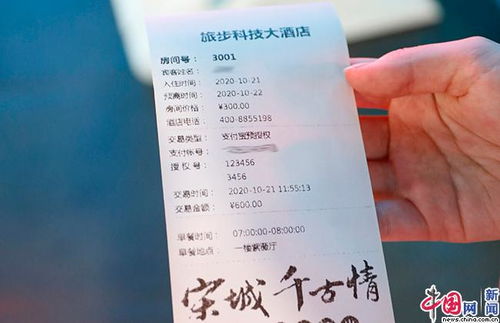 旅步科技大酒店
房间号： 3001
宾客姓名：
入住时间： 2020-10-21
预离时间： 2020-10-22
房间价格： ¥300.00
酒店电话： 400-8855198
交易类型： 支付宝预授权
支付帐号：
授 权 号： 123456
3456
交易时间： 2020-10-21 11:55:13
交易金额： ¥600.00
早餐时间： 07:00:00-08:00:00
早餐地点： 一楼紫薇厅
宋城 千古情
中国网 新闻
news.china.com.cn